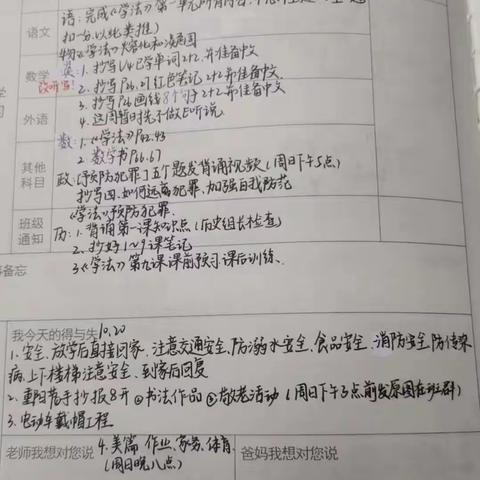 语:完成《学法》第一单元所有内容,
语文
扣一分,以此类推)
物《学法》熔化和凝固
数学
英:1.抄写U4已学单词2+2,并准备中文
改听写!
2.抄写P20.21红色笔记2+2并准备中文
3.抄写P20画线8个句子2+2并准备中文
外语
4.这周暂时先不做E听说
数:1.《学法》P42.43
2.数学书P66.67
其他
科目
政:《预防犯罪》五个题发背诵视频(周日下午5点)
抄写四.如何远离犯罪.加强自我防范
《学法》预防犯罪.
班级
通知
历:1.背诵第一课知识点(历史组长检查)
2.抄好1~9课笔记
备忘
3.《学法》第九课课前预习课后训练、
我今天的得与失10.20
1.安全.放学后直接回家.注意交通安全,防溺水安全.食品安全.消防安全.防传染
病.上下楼梯注意安全.到家后回复
2.重阳节手抄报8开 ②书法作品 ③敬老活动(周日下午3点前发原图在班群)
3.电动车戴帽工程
老师我想对您说
4.美篇 作业、家务、体育.
(周日晚八点)
爸妈我想对您说